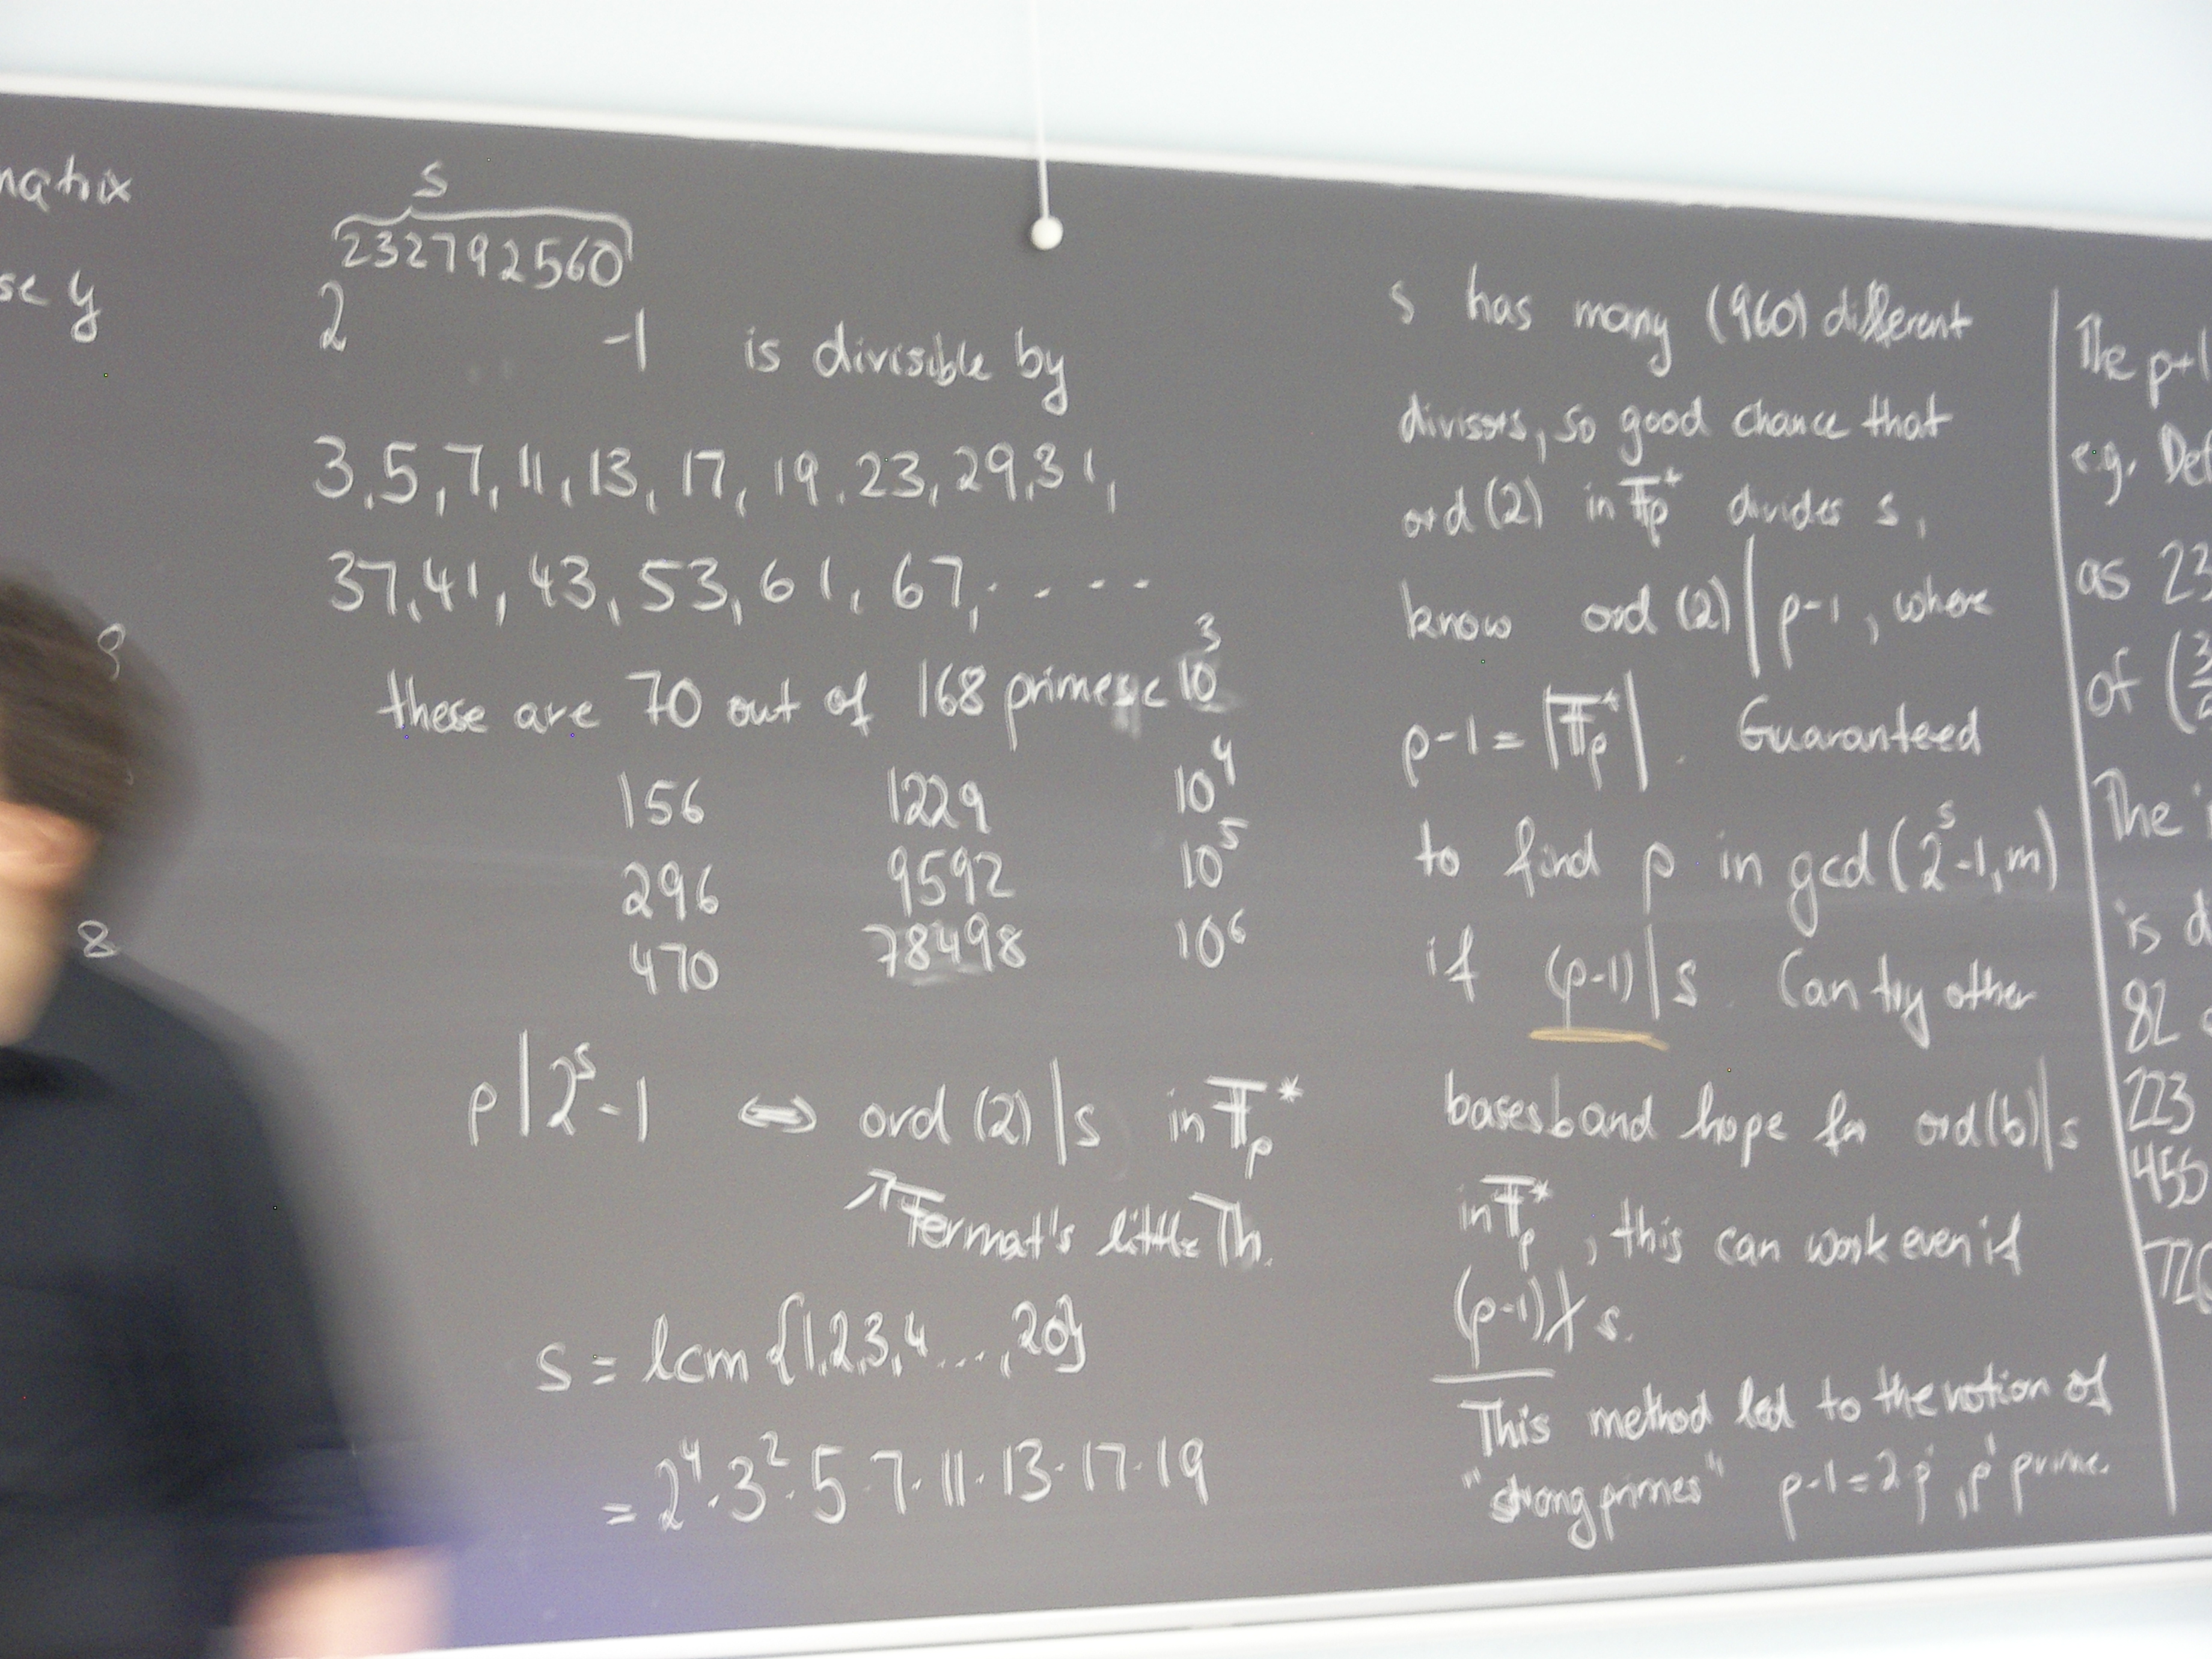 matrix
se y
9
8
s
232792560
2 -1 is divisible by
3,5,7,11,13,17,19,23,29,31,
37,41,43,53,61,67,....
these are 70 out of 168 primes < 10³
156 1229 10⁴
296 9592 10⁵
470 78498 10⁶
p | 2ˢ-1 ⇔ ord (2) | s in 𝔽p*
↗ Fermat's little Th.
s = lcm {1,2,3,4...,20}
= 2⁴·3²·5·7·11·13·17·19
s has many (960) different
divisors, so good chance that
ord (2) in 𝔽p* divides s,
know ord (2) | p-1, where
p-1 = |𝔽p*|. Guaranteed
to find p in gcd (2ˢ-1, m)
if (p-1) | s. Can try other
bases b and hope for ord(b) | s
in 𝔽p*, this can work even if
(p-1) ∤ s.
This method led to the notion of
"strong primes" p-1 = 2p', p' prime.
The p+1
e.g. Det
as 23
of (3
The
is d
82
223
455